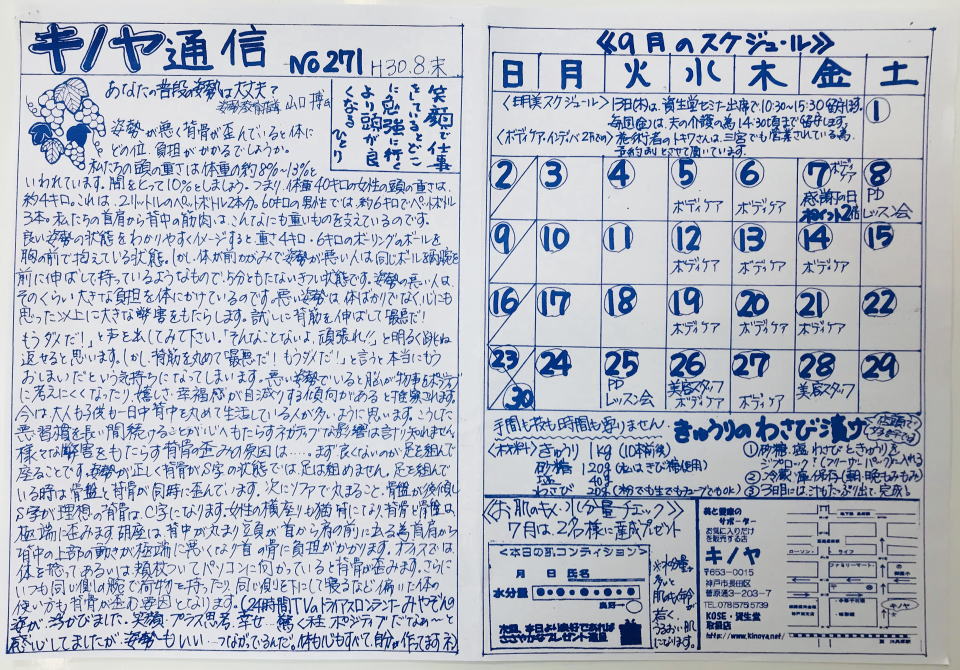 キノヤ通信 No271 H30.8.末
あなたの普段の姿勢は大丈夫？
姿勢教育指導 山口 博
笑顔で仕事
をしているとどこ
に勉強に行く
より頭が良
くなる ひとり
姿勢が悪く背骨が歪んでいると体に
どの位、負担がかかるでしょうか。
私たちの頭の重さは体重の約8%〜13%と
いわれています。間をとって10%としましょう。つまり、体重40キロの女性の頭の重さは、
約4キロ。これは、2リットルのペットボトル2本分。60キロの男性では、約6キロでペットボトル
3本。私たちの首肩から背中の筋肉は、こんなにも重いものを支えているのです。
良い姿勢の状態をわかりやすくイメージすると重さ4キロ・6キロのボーリングのボールを
胸の前で抱えている状態。しかし、体が前かがみで姿勢が悪い人は同じボールを両腕を
前に伸ばして持っているようなもので、5分ともたないきつい状態です。姿勢の悪い人は、
そのくらい大きな負担を体にかけているのです。悪い姿勢は、体ばかりでなく、心にも
思った以上に大きな弊害をもたらします。試しに背筋を伸ばして「最悪だ！
もうダメだ！」と声を出してみて下さい。「そんなことないよ、頑張れ！！」と明るく跳ね
返せると思います。しかし、背筋を丸めて「最悪だ！もうダメだ！」と言うと本当にもう
おしまいだという気持ちになってしまいます。悪い姿勢でいると脳が物事をポジティブ
に考えにくくなったり、嬉しさ・幸福感が目減りする傾向があると推察されます。
今は大人も子供も一日中背中を丸めて生活している人が多いように思います。こうした
悪習慣を長い間続けることが心へもたらすネガティブな影響は計り知れません。
様々な弊害をもたらす背骨の歪みの原因は……。まず良くないのが足を組んで
座ることです。姿勢が正しく背骨がS字の状態では足は組めません。足を組んで
いる時は骨盤と背骨が同時に歪んでいます。次にソファで丸まること。骨盤が後傾し
S字が理想の背骨は、C字になります。女性の横座りも猫背になり背骨と骨盤は、
極端に歪みます。胡座は、背中が丸まり立肩が首から肩の前に出る為首肩から
背中の上部の動きが極端に悪くなり首の骨に負担がかかります。オフィスでは、
体を捻ってあるいは頬杖ついてパソコンに向かっていると背骨が歪みます。さらに
いつも同じ側の腕で荷物を持ったり、同じ側を下にして寝るなど偏った体の
使い方も背骨が歪む要因となります。(24時間TVのトライアスロンランナーみやぞんの
姿が浮かびました。笑顔・プラス思考、幸せ、驚く程ポジティブだなぁ〜と
感心してましたが、姿勢もいい…つながっているんだ。体も心もすべて、自分が作ってます。ネ)
≪9月のスケジュール≫
日 月 火 水 木 金 土
＜明美スケジュール＞ 13日(木)は、資生堂セミナー出席で10:30〜15:30留守します。
毎回(金)は、夫の介護の為14:30頃まで留守します。
＜ボディケア・インディバ 2Fにて＞ 施術者のトキワさんは、三宮でも営業されている為、
予約のみとさせて頂いています。
1
2 3 4 5 6 7 8
ボディケア ボディケア ボディケア 感謝の日 ポイント2倍 PD レッスン会
9 10 11 12 13 14 15
ボディケア ボディケア ボディケア
16 17 18 19 20 21 22
ボディケア ボディケア ボディケア
23 30 24 25 26 27 28 29
PD レッスン会 美容スタッフ ボディケア ボディケア 美容スタッフ ボディケア
手間も技も時間も要りません きゅうりのわさび漬け
＜材料＞ きゅうり 1kg (10本前後)
砂糖 120g (私はきび糖使用)
塩 40g
わさび 20g (粉でも生でもチューブでもOK)
① 砂糖、塩、わさびときゅうりを
ジプロック(フリーザーバック)に入れる
② 冷蔵庫保存(朝・晩もみもみ)
③ 3日目には汁もたっぷり出て、完成！
≪お肌のキメ・水分量チェック≫
7月は、2名様に達成プレゼント
＜本日の肌コンディション＞
月 日 氏名
水分量
次回、本日より良好であれば
ささやかなプレゼント進呈
※水分量が
多いと
肌年齢が
若く、
うるおい肌
になります。
美と健康の
サポーター
お気に入りだけ
を販売する店
キノヤ
〒653-0015
神戸市長田区
菅原通3-203-7
TEL 078(575)5739
KOSE・資生堂
取扱店
http://www.kinoya.net/
ローソン
ライフ
ファミリーマート
キノヤ